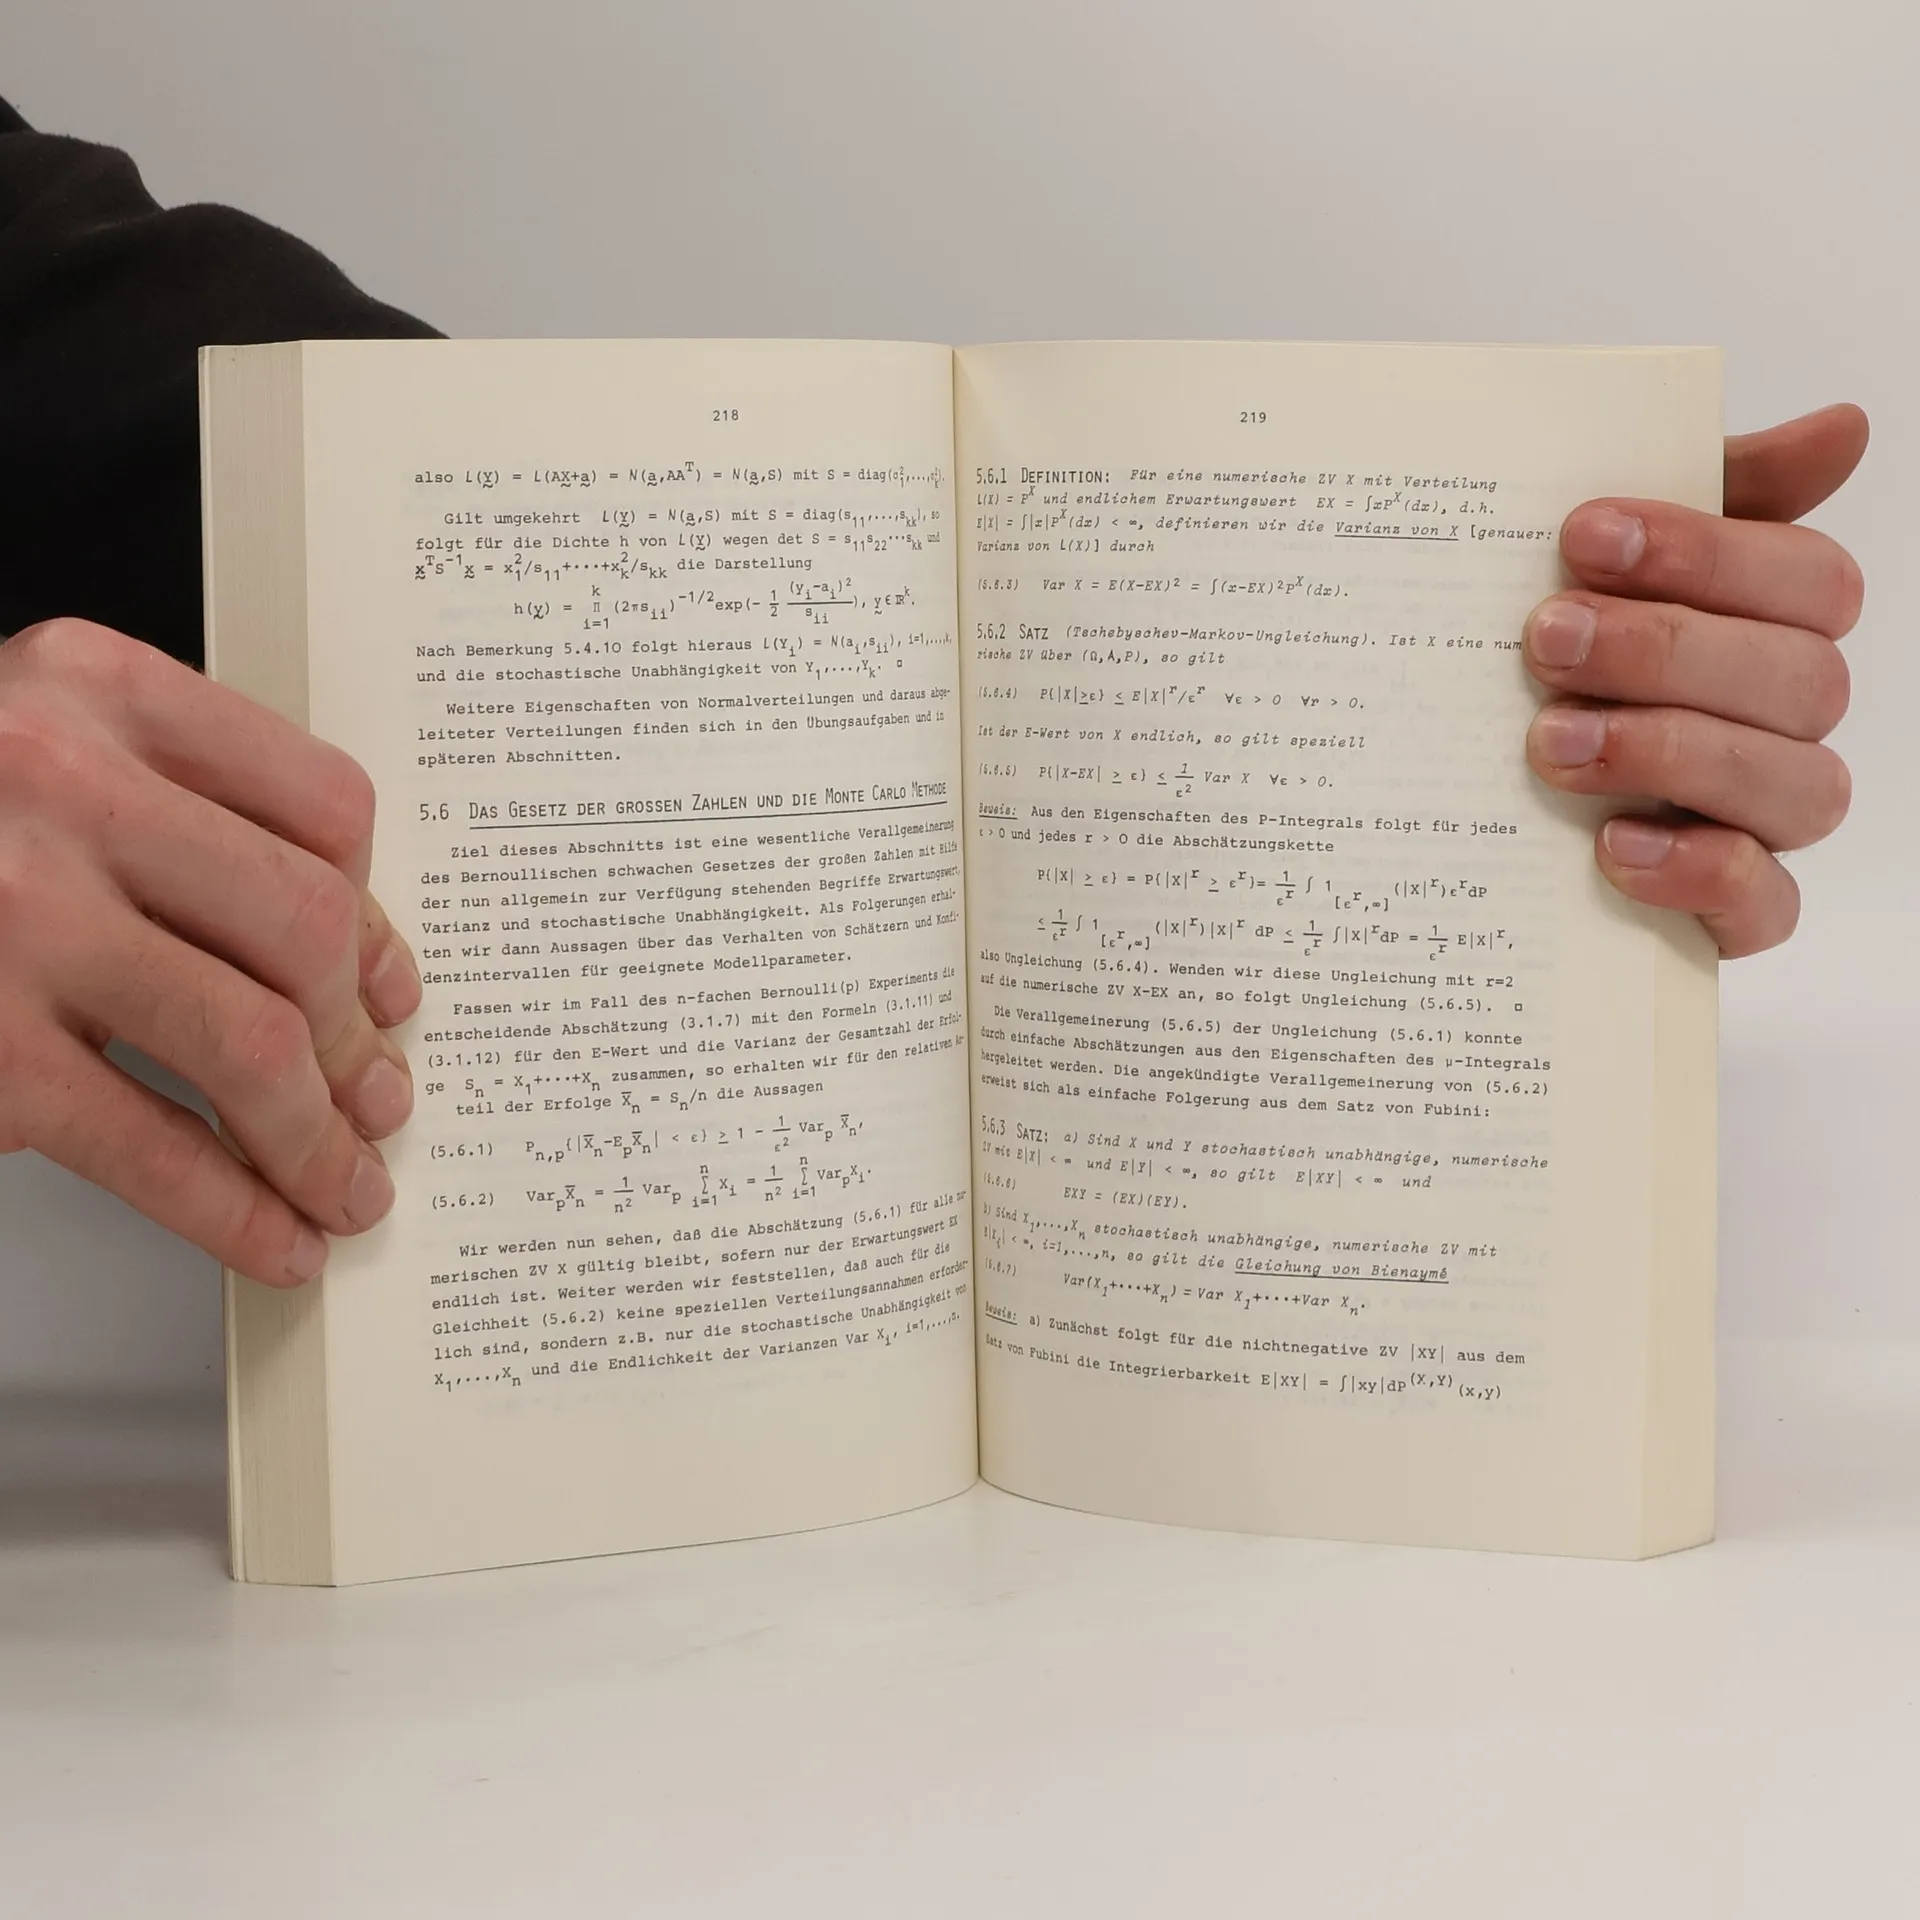 218
also L(Y) = L(AX+a) = N(a,AAᵀ) = N(a,S) mit S = diag(σ₁²,...,σₖ²).
Gilt umgekehrt L(Y) = N(a,S) mit S = diag(s₁₁,...,sₖₖ), so
folgt für die Dichte h von L(Y) wegen det S = s₁₁s₂₂···sₖₖ und
xᵀS⁻¹x = x₁²/s₁₁+···+xₖ²/sₖₖ die Darstellung
h(y) = ∏_{i=1}^{k} (2πs_{ii})^{-1/2} exp(- 1/2 (y_i-a_i)²/s_{ii}), y ∈ ℝᵏ.
Nach Bemerkung 5.4.10 folgt hieraus L(Y_i) = N(a_i,s_{ii}), i=1,...,k,
und die stochastische Unabhängigkeit von Y₁,...,Yₖ. □
Weitere Eigenschaften von Normalverteilungen und daraus abge-
leiteter Verteilungen finden sich in den Übungsaufgaben und in
späteren Abschnitten.
5.6 DAS GESETZ DER GROSSEN ZAHLEN UND DIE MONTE CARLO METHODE
Ziel dieses Abschnitts ist eine wesentliche Verallgemeinerung
des Bernoullischen schwachen Gesetzes der großen Zahlen mit Hilfe
der nun allgemein zur Verfügung stehenden Begriffe Erwartungswert,
Varianz und stochastische Unabhängigkeit. Als Folgerungen erhal-
ten wir dann Aussagen über das Verhalten von Schätzern und Konfi-
denzintervallen für geeignete Modellparameter.
Fassen wir im Fall des n-fachen Bernoulli(p) Experiments die
entscheidende Abschätzung (3.1.7) mit den Formeln (3.1.11) und
(3.1.12) für den E-Wert und die Varianz der Gesamtzahl der Erfol-
ge Sₙ = X₁+···+Xₙ zusammen, so erhalten wir für den relativen
teil der Erfolge X̄ₙ = Sₙ/n die Aussagen
(5.6.1) P_{n,p}{|X̄ₙ-E_pX̄ₙ| < ε} ≥ 1 - 1/ε² Var_p X̄ₙ,
(5.6.2) Var_p X̄ₙ = 1/n² Var_p ∑_{i=1}^{n} X_i = 1/n² ∑_{i=1}^{n} Var_p X_i.
Wir werden nun sehen, daß die Abschätzung (5.6.1) für alle nu-
merischen ZV X gültig bleibt, sofern nur der Erwartungswert EX
endlich ist. Weiter werden wir feststellen, daß auch für die
Gleichheit (5.6.2) keine speziellen Verteilungsannahmen erforder-
lich sind, sondern z.B. nur die stochastische Unabhängigkeit von
X₁,...,Xₙ und die Endlichkeit der Varianzen Var X_i, i=1,...,n.
219
5.6.1 DEFINITION: Für eine numerische ZV X mit Verteilung
L(X) = P^X und endlichem Erwartungswert EX = ∫xP^X(dx), d.h.
E|X| = ∫|x|P^X(dx) < ∞, definieren wir die Varianz von X [genauer:
Varianz von L(X)] durch
(5.6.3) Var X = E(X-EX)² = ∫(x-EX)²P^X(dx).
5.6.2 SATZ (Tschebyschev-Markov-Ungleichung). Ist X eine num
rische ZV über (Ω,A,P), so gilt
(5.6.4) P{|X|≥ε} ≤ E|X|ʳ/εʳ ∀ε > 0 ∀r > 0.
Ist der E-Wert von X endlich, so gilt speziell
(5.6.5) P{|X-EX| ≥ ε} ≤ 1/ε² Var X ∀ε > 0.
Beweis: Aus den Eigenschaften des P-Integrals folgt für jedes
ε > 0 und jedes r > 0 die Abschätzungskette
P{|X| ≥ ε} = P{|X|ʳ ≥ εʳ}= 1/εʳ ∫ 1_{[εʳ,∞]} (|X|ʳ)εʳdP
≤ 1/εʳ ∫ 1_{[εʳ,∞]} (|X|ʳ)|X|ʳ dP ≤ 1/εʳ ∫|X|ʳdP = 1/εʳ E|X|ʳ,
also Ungleichung (5.6.4). Wenden wir diese Ungleichung mit r=2
auf die numerische ZV X-EX an, so folgt Ungleichung (5.6.5). □
Die Verallgemeinerung (5.6.5) der Ungleichung (5.6.1) konnte
durch einfache Abschätzungen aus den Eigenschaften des μ-Integrals
hergeleitet werden. Die angekündigte Verallgemeinerung von (5.6.2)
erweist sich als einfache Folgerung aus dem Satz von Fubini:
5.6.3 SATZ: a) Sind X und Y stochastisch unabhängige, numerische
ZV mit E|X| < ∞ und E|Y| < ∞, so gilt E|XY| < ∞ und
(5.6.6) EXY = (EX)(EY).
b) Sind X₁,...,Xₙ stochastisch unabhängige, numerische ZV mit
E|X_i| < ∞, i=1,...,n, so gilt die Gleichung von Bienaymé
(5.6.7) Var(X₁+···+Xₙ) = Var X₁+···+Var Xₙ.
Beweis: a) Zunächst folgt für die nichtnegative ZV |XY| aus dem
Satz von Fubini die Integrierbarkeit E|XY| = ∫|xy|dP^{(X,Y)}(x,y)